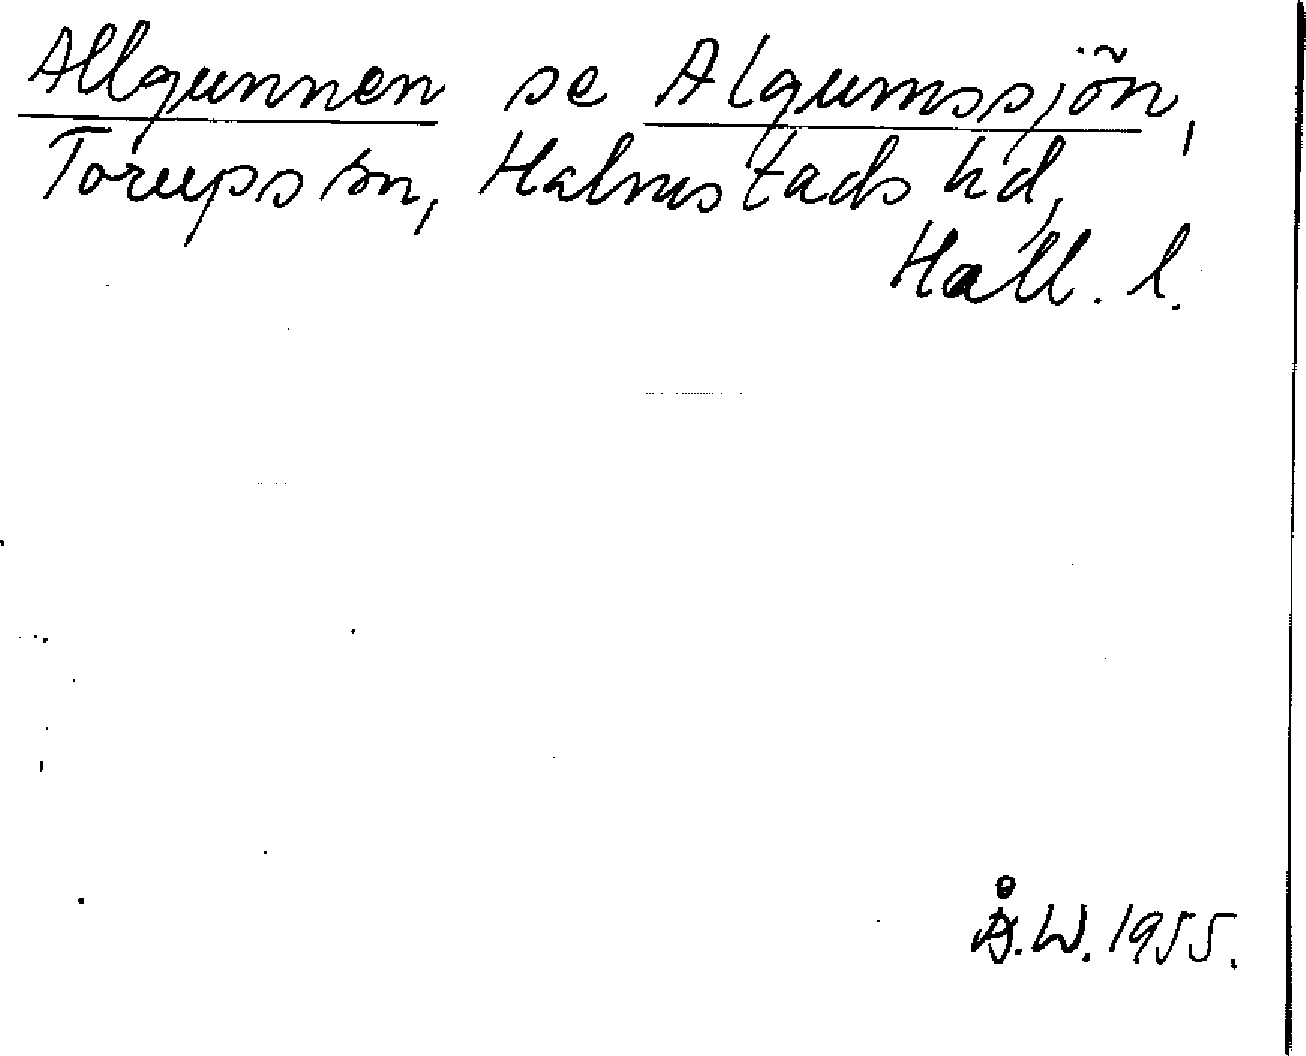 Allgunnen se Algumssjön,
Torups sn, Halmstads hd,
Hall. l.
Å.W. 1955.